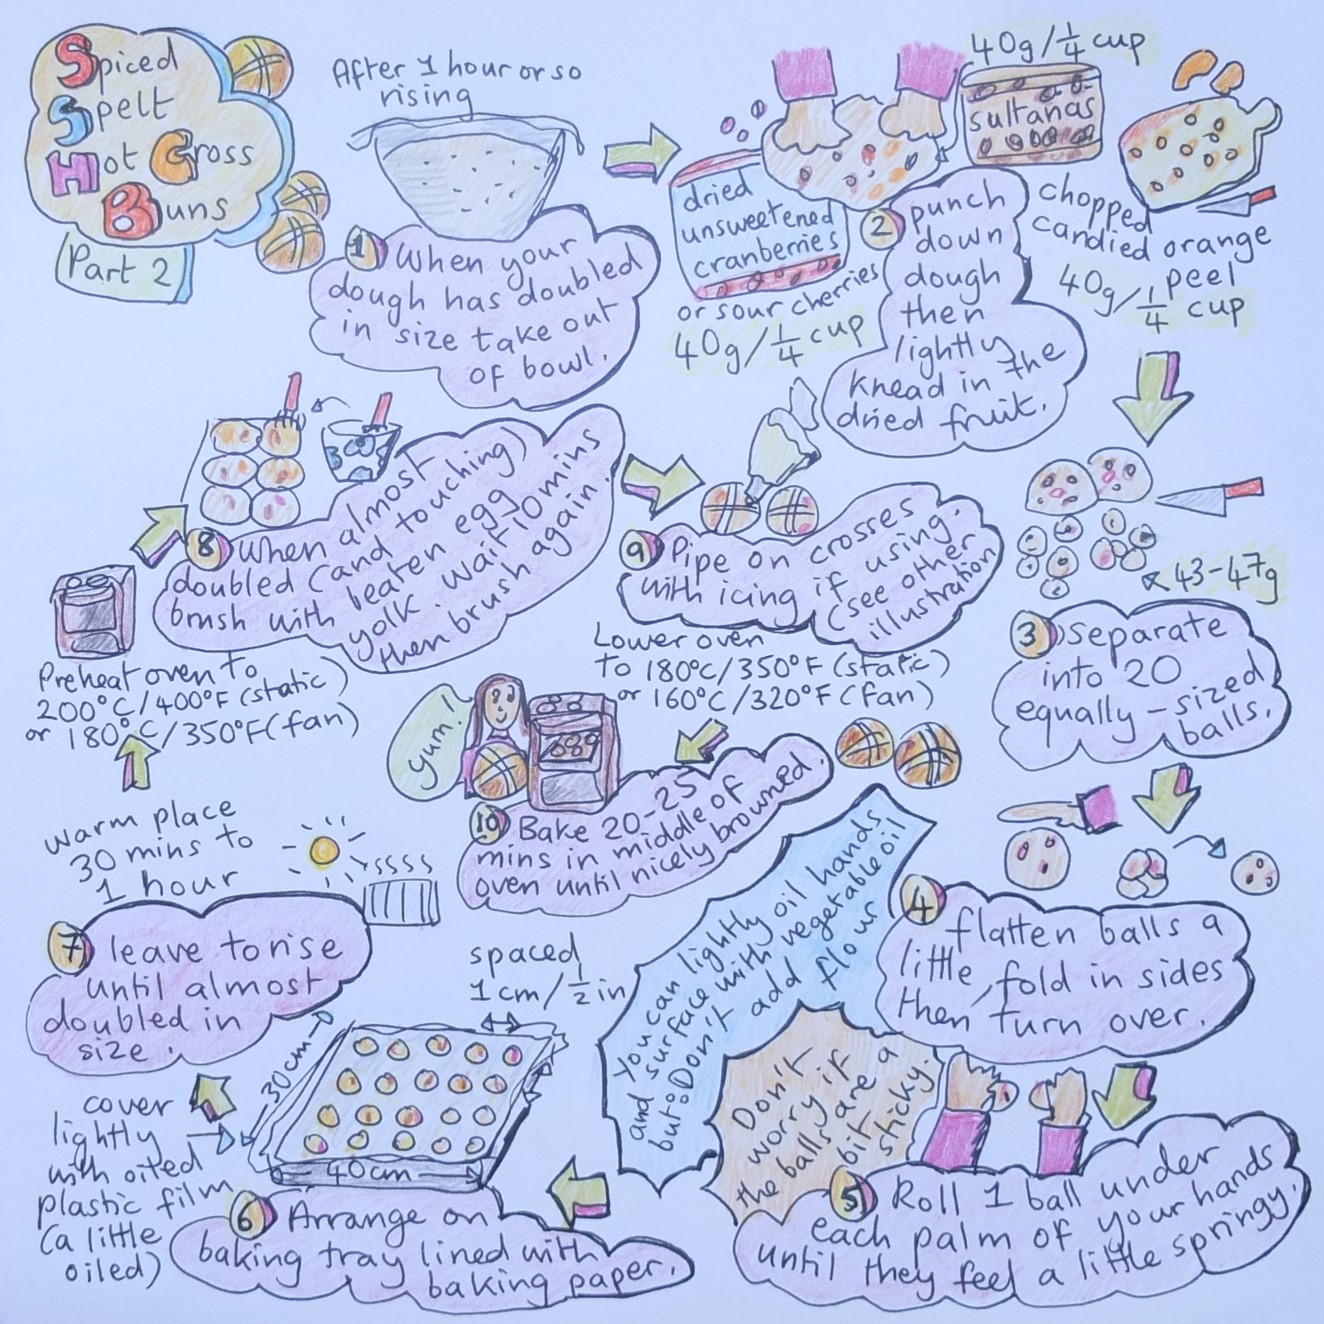 Spiced
Spelt
Hot Cross
Buns
Part 2
After 1 hour or so
rising
1 When your
dough has doubled
in size take out
of bowl.
dried
unsweetened
cranberries
or sour cherries
40g/¼ cup
40g/¼ cup
sultanas
chopped
candied orange
peel
40g/¼ cup
2 punch
down
dough
then
lightly
knead in the
dried fruit.
43-47g
3 separate
into 20
equally-sized
balls.
4 flatten balls a
little, fold in sides
then turn over.
You can lightly oil hands
and surface with vegetable oil
but Don't add flour
Don't
worry if
the balls are a
bit sticky.
5 Roll 1 ball under
each palm of your hands
until they feel a little springy.
spaced
1cm/½in
30cm
40cm
6 Arrange on
baking tray lined with
baking paper.
cover
lightly
with oiled
plastic film
(a little
oiled)
7 leave to rise
until almost
doubled in
size.
warm place
30 mins to
1 hour
Preheat oven to
200°C/400°F (static)
or 180°C/350°F (fan)
8 when almost
doubled (and touching)
brush with beaten egg
yolk wait 10 mins
then brush again.
9 Pipe on crosses
with icing if using.
(see other
illustration)
Lower oven
to 180°C/350°F (static)
or 160°C/320°F (fan)
yum!
10 Bake 20-25
mins in middle of
oven until nicely browned.